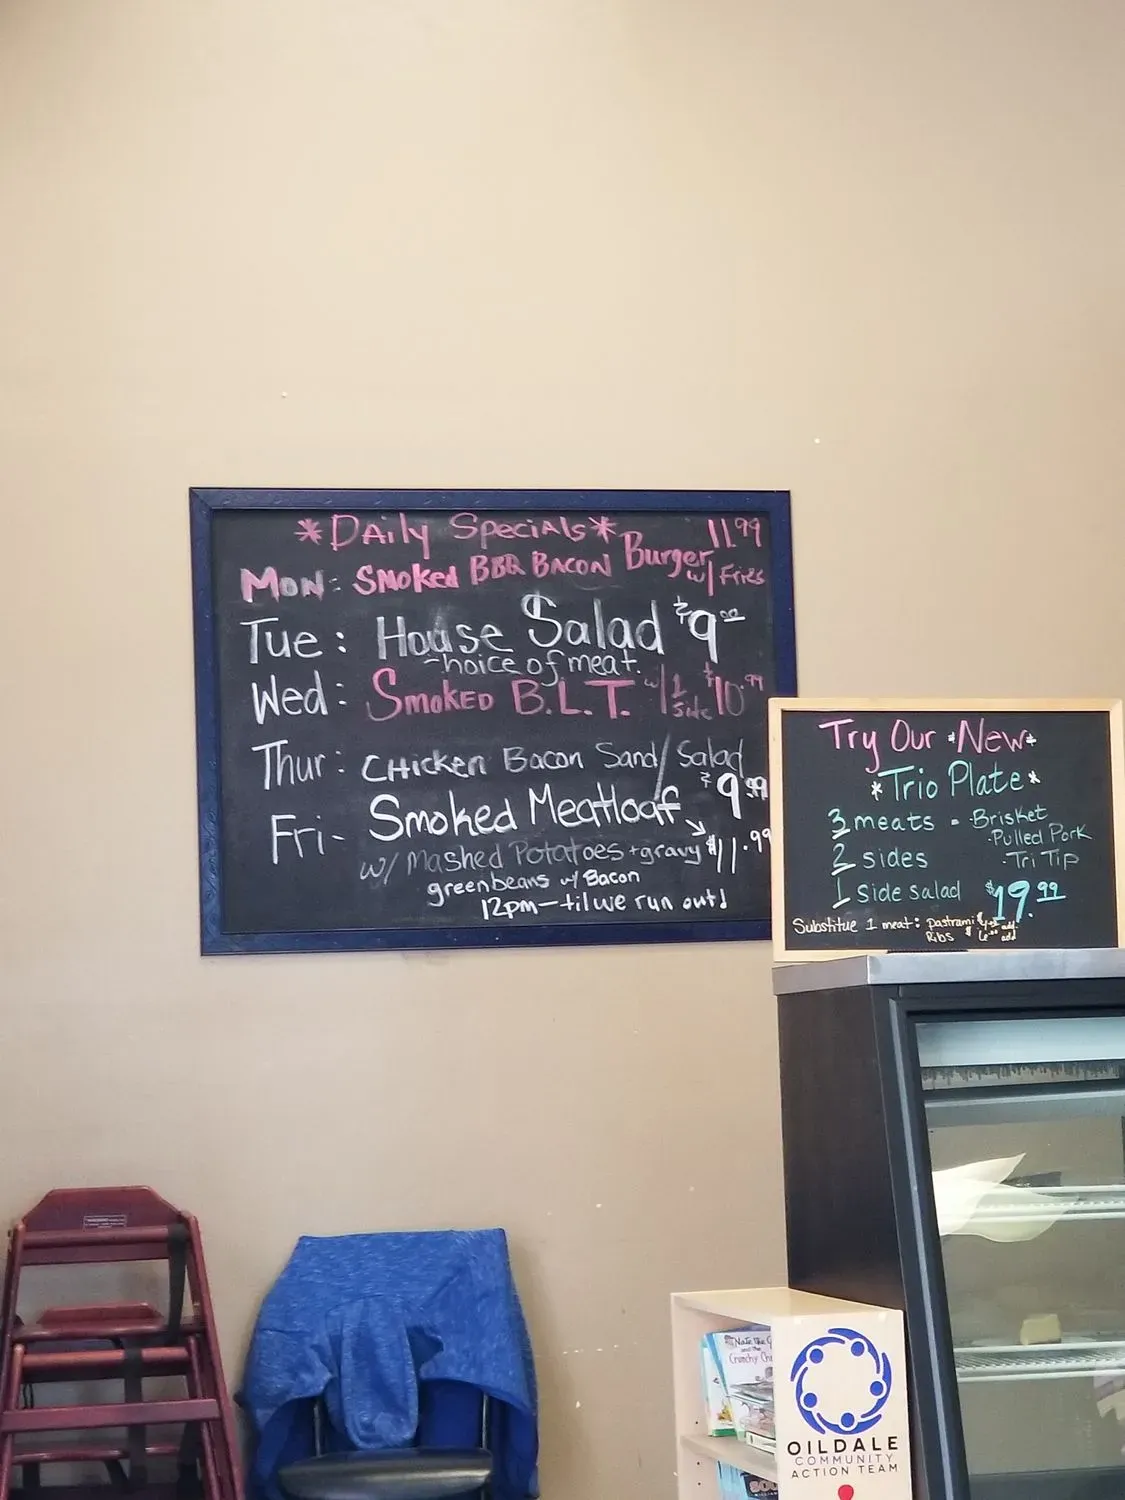 *Daily Specials*
Mon: Smoked BBQ Bacon Burger w/ Fries 11.99
Tue: House Salad $9.00
-hoice of meat.
Wed: Smoked B.L.T. w/ 1 Side $10.99
Thur: Chicken Bacon Sand/Salad
$9.99
Fri- Smoked Meatloaf
w/ Mashed Potatoes + gravy $11.99
greenbeans w/ Bacon
12pm—til we run out!
Try Our *New*
*Trio Plate*
3 meats - Brisket
·Pulled Pork
2 sides ·Tri Tip
1 side salad $19.99
Substitue 1 meat: pastrami add
Ribs $6.00 add
Nate the G
and the
Crunchy Ch
OILDALE
COMMUNITY
ACTION TEAM